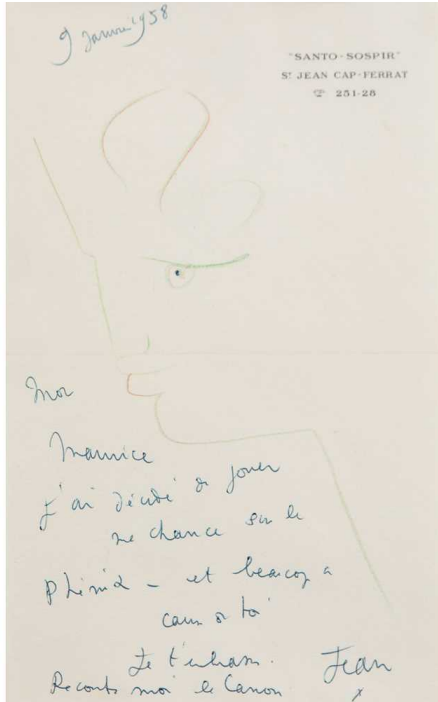 9 Janvier 1958
"SANTO-SOSPIR"
St JEAN CAP-FERRAT
☎ 251-28
Mon
Maurice
j'ai décidé de jouer
me chance sur le
Phénix – et beaucoup a
cause de toi
Je t'embrasse.
Jean
Raconte moi le Canon